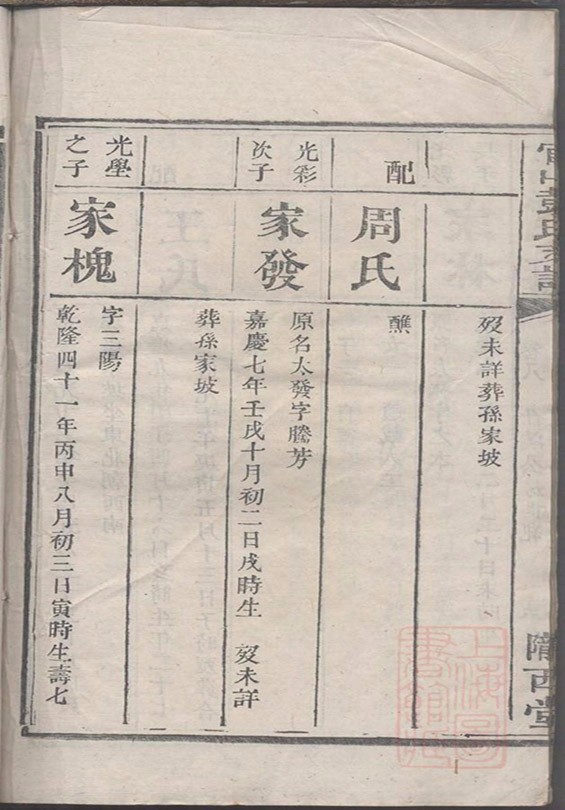 隴西堂
歿未詳葬孫家坡
配
周氏
醮
光彩
次子
家發
原名太發字騰芳
嘉慶七年壬戌十月初二日戌時生 歿未詳
葬孫家坡
光學
之子
家槐
字三陽
乾隆四十一年丙申八月初三日寅時生壽七
上海圖
書館藏